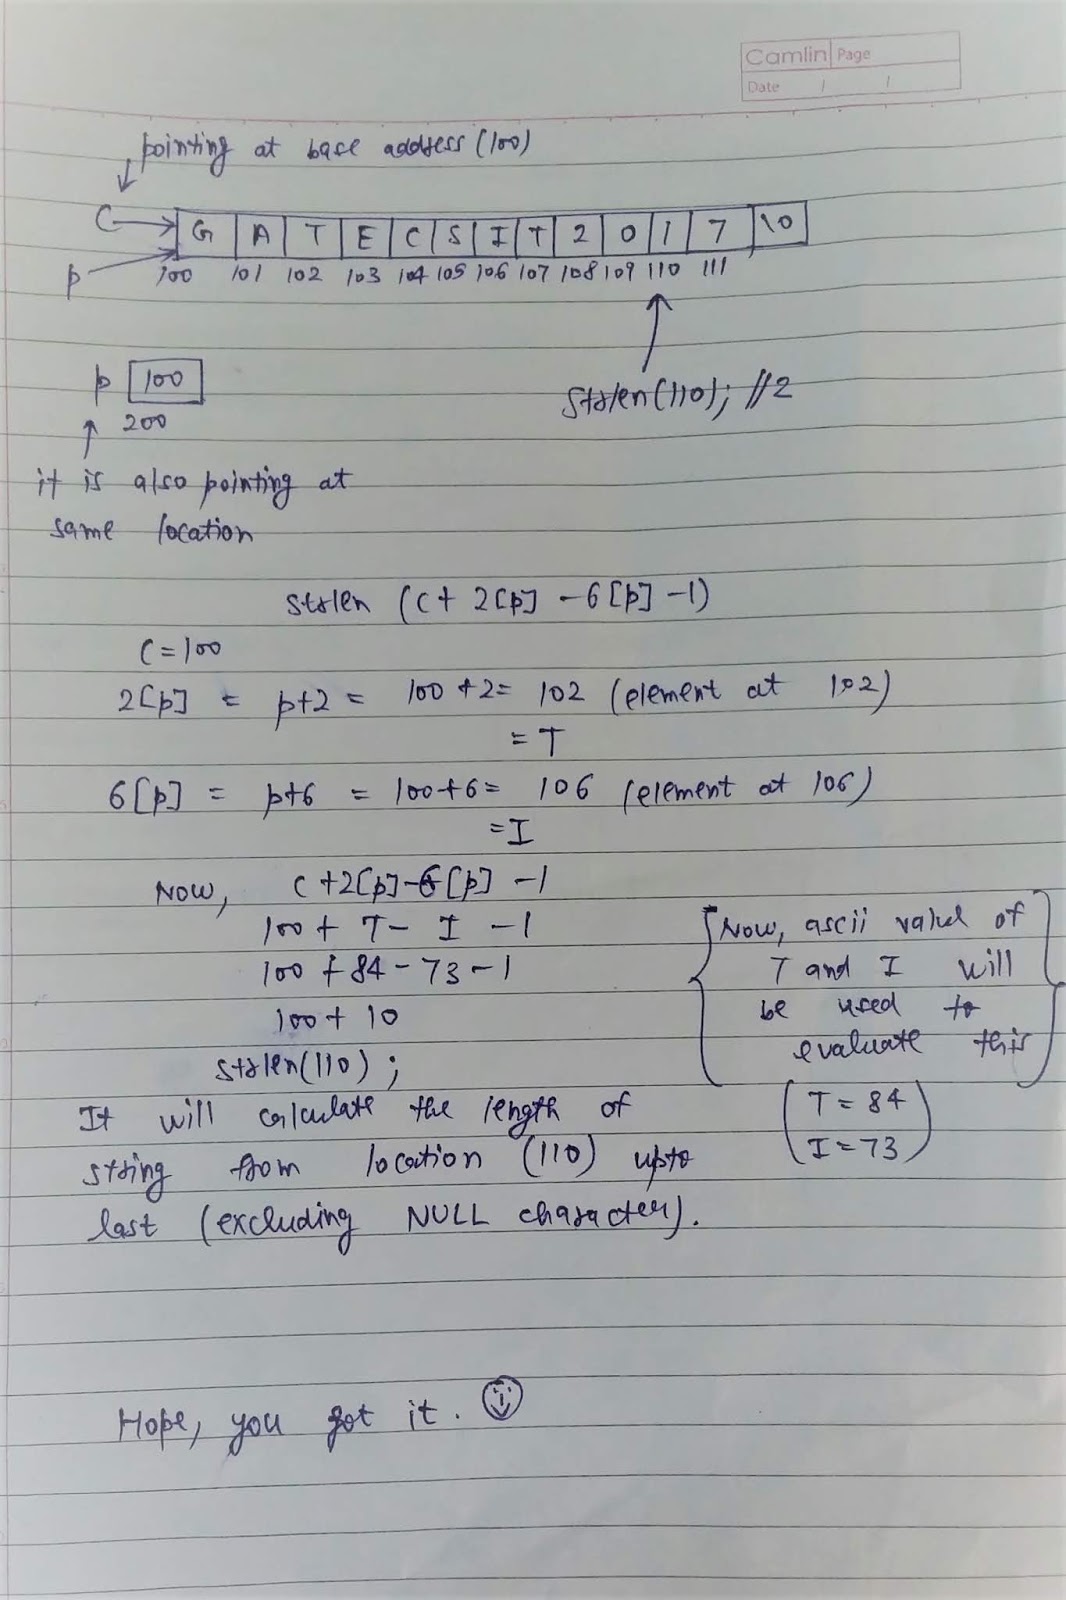 Camlin Page
Date / /
pointing at base address (100)
C G A T E C S I T 2 0 1 7 \0
p 100 101 102 103 104 105 106 107 108 109 110 111
strlen(110); //2
p 100
200
it is also pointing at
same location
strlen (C + 2[p] - 6[p] - 1)
C = 100
2[p] = p+2 = 100 + 2 = 102 (element at 102)
= T
6[p] = p+6 = 100+6 = 106 (element at 106)
= I
Now, C + 2[p] - 6[p] - 1
100 + T - I - 1
100 + 84 - 73 - 1
100 + 10
strlen(110);
{Now, ascii value of
T and I will
be used to
evaluate this}
(T = 84
I = 73)
It will calculate the length of
string from location (110) upto
last (excluding NULL character).
Hope, you got it.